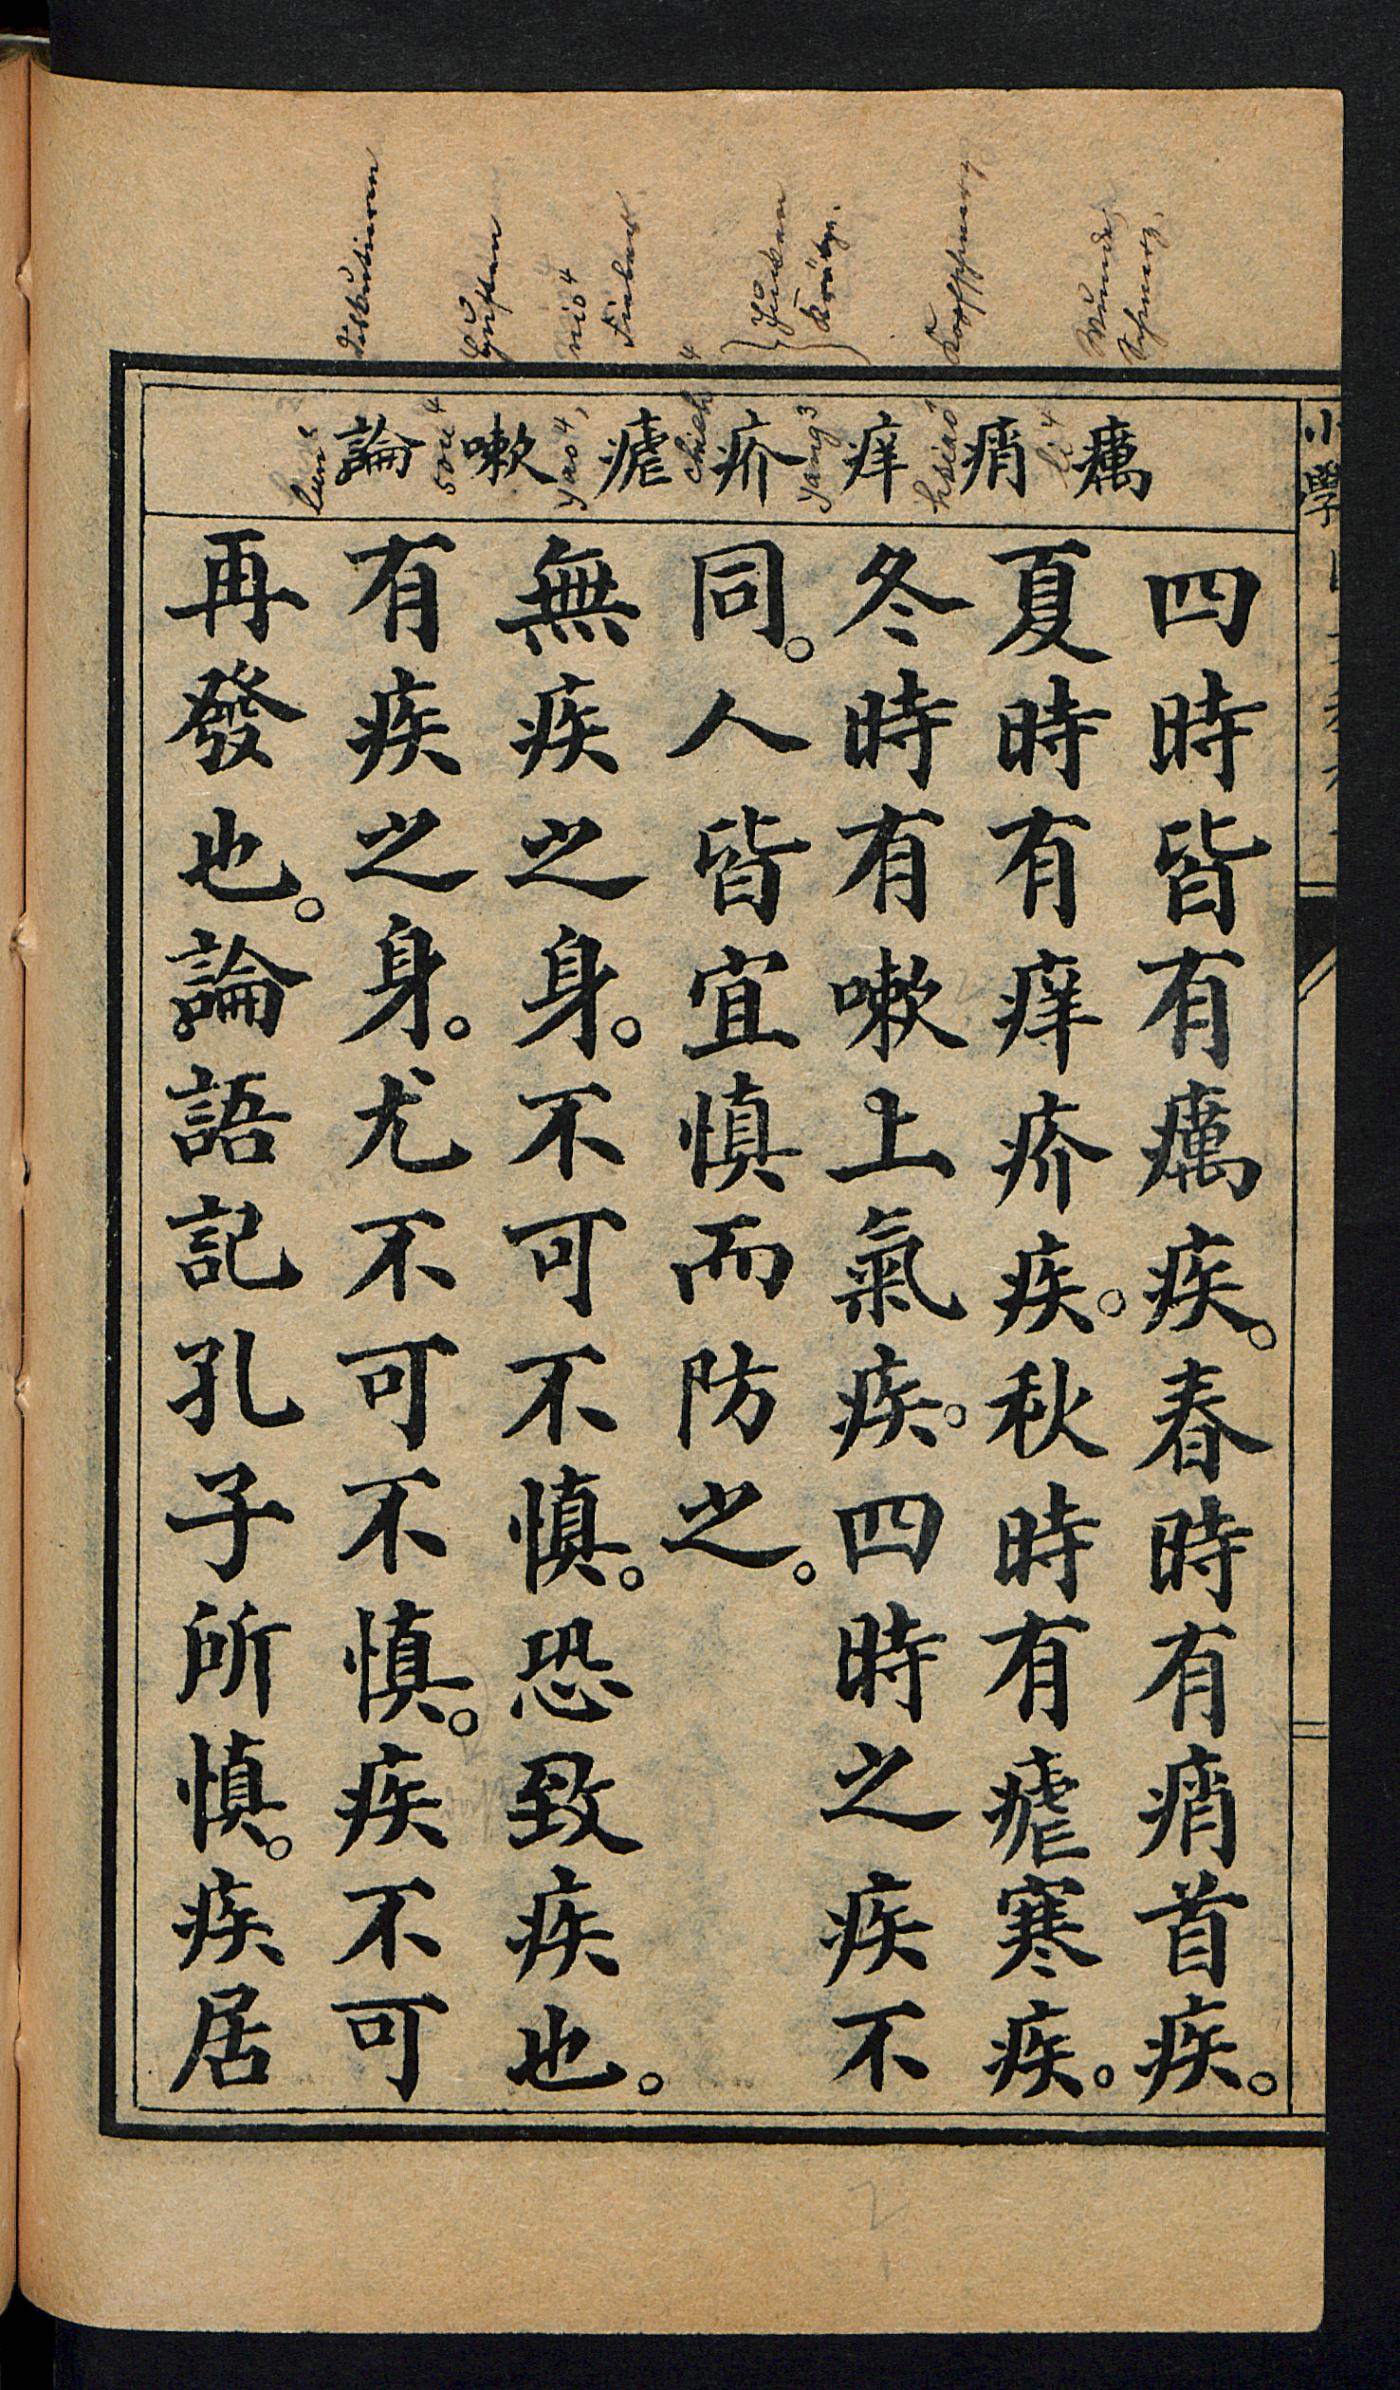 癘痟痒疥瘧嗽論
四時皆有癘疾。春時有痟首疾。
夏時有痒疥疾。秋時有瘧寒疾。
冬時有嗽上氣疾。四時之疾不
同。人皆宜慎而防之。
無疾之身。不可不慎。恐致疾也。
有疾之身。尤不可不慎。疾不可
再發也。論語記孔子所慎。疾居
小學
li4
hsiao1
yang3
chieh4
yao4, nio4
sou4
lun2
Wunde,
Schmerz.
Kopfschmerz
Jücken
Krätze.
Fieber
Husten
diskutieren